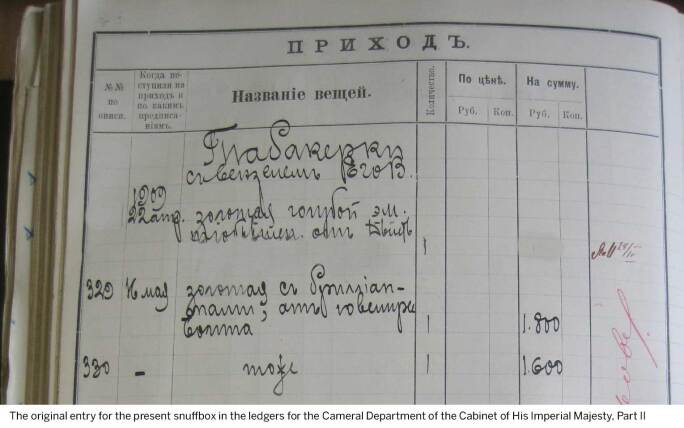 ПРИХОДЪ.
№№
по
описи.
Когда по-
ступили на
приходъ и
по какимъ
предписа-
ніямъ.
Названіе вещей.
Количество.
По цѣнѣ.
Руб. Коп.
На сумму.
Руб. Коп.
Табакерки
съ вензелемъ Его В.
1909
22 апр. золотая голубой эм.
отъ 1
329 16 мая золотая съ брилліан-
тами, отъ ювелира
1 1.800
330 - тоже 1 1.600
The original entry for the present snuffbox in the ledgers for the Cameral Department of the Cabinet of His Imperial Majesty, Part II